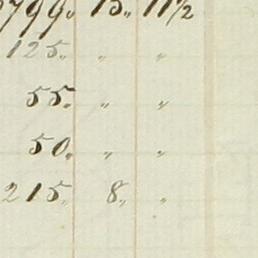 5799„ 15„ 11½
125„ „ „
55„ „ „
50„ „ „
215„ 8„ „